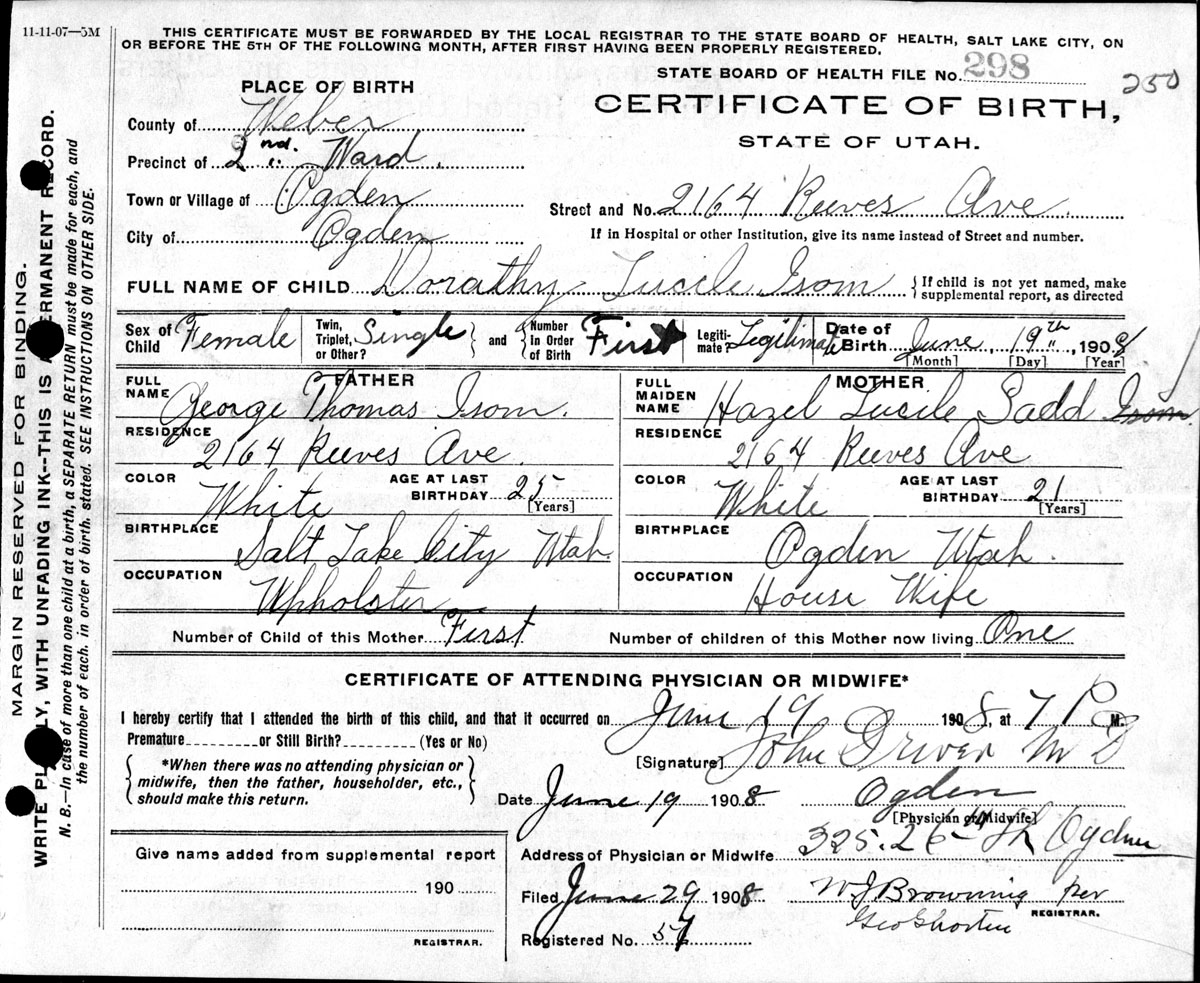 11-11-07—5M
THIS CERTIFICATE MUST BE FORWARDED BY THE LOCAL REGISTRAR TO THE STATE BOARD OF HEALTH, SALT LAKE CITY, ON
OR BEFORE THE 5TH OF THE FOLLOWING MONTH, AFTER FIRST HAVING BEEN PROPERLY REGISTERED.
STATE BOARD OF HEALTH FILE No. 298
250
PLACE OF BIRTH
CERTIFICATE OF BIRTH,
STATE OF UTAH.
County of Weber
Precinct of 2nd. Ward.
Town or Village of Ogden
City of Ogden
Street and No. 2164 Reeves Ave.
If in Hospital or other Institution, give its name instead of Street and number.
FULL NAME OF CHILD Dorathy Lucile Isom
{If child is not yet named, make
supplemental report, as directed
Sex of Child Female
Twin, Triplet, or Other? Single
and
Number In Order of Birth First
Legiti-mate? Legitimate
Date of Birth June 19th, 1908
[Month] [Day] [Year]
FATHER
FULL NAME George Thomas Isom.
RESIDENCE
2164 Reeves Ave.
COLOR White
AGE AT LAST BIRTHDAY 25
[Years]
BIRTHPLACE
Salt Lake City Utah.
OCCUPATION
Upholster
MOTHER
FULL MAIDEN NAME Hazel Lucile Sadd Isom
RESIDENCE
2164 Reeves Ave
COLOR White
AGE AT LAST BIRTHDAY 21
[Years]
BIRTHPLACE
Ogden Utah.
OCCUPATION
House Wife
Number of Child of this Mother First
Number of children of this Mother now living One
CERTIFICATE OF ATTENDING PHYSICIAN OR MIDWIFE*
I hereby certify that I attended the birth of this child, and that it occurred on June 19 1908, at 7 P M.
Premature or Still Birth? (Yes or No)
[Signature] John Driver M D
{*When there was no attending physician or
midwife, then the father, householder, etc.,
should make this return.}
Date June 19 1908
Ogden
[Physician or Midwife]
Address of Physician or Midwife 325. 26th Ogden
Give name added from supplemental report
190
REGISTRAR.
Filed June 29 1908
W J Browning per
REGISTRAR.
Registered No.
MARGIN RESERVED FOR BINDING.
WRITE PLAINLY, WITH UNFADING INK--THIS IS A PERMANENT RECORD.
N. B.—In case of more than one child at a birth, a SEPARATE RETURN must be made for each, and
the number of each, in order of birth, stated. SEE INSTRUCTIONS ON OTHER SIDE.